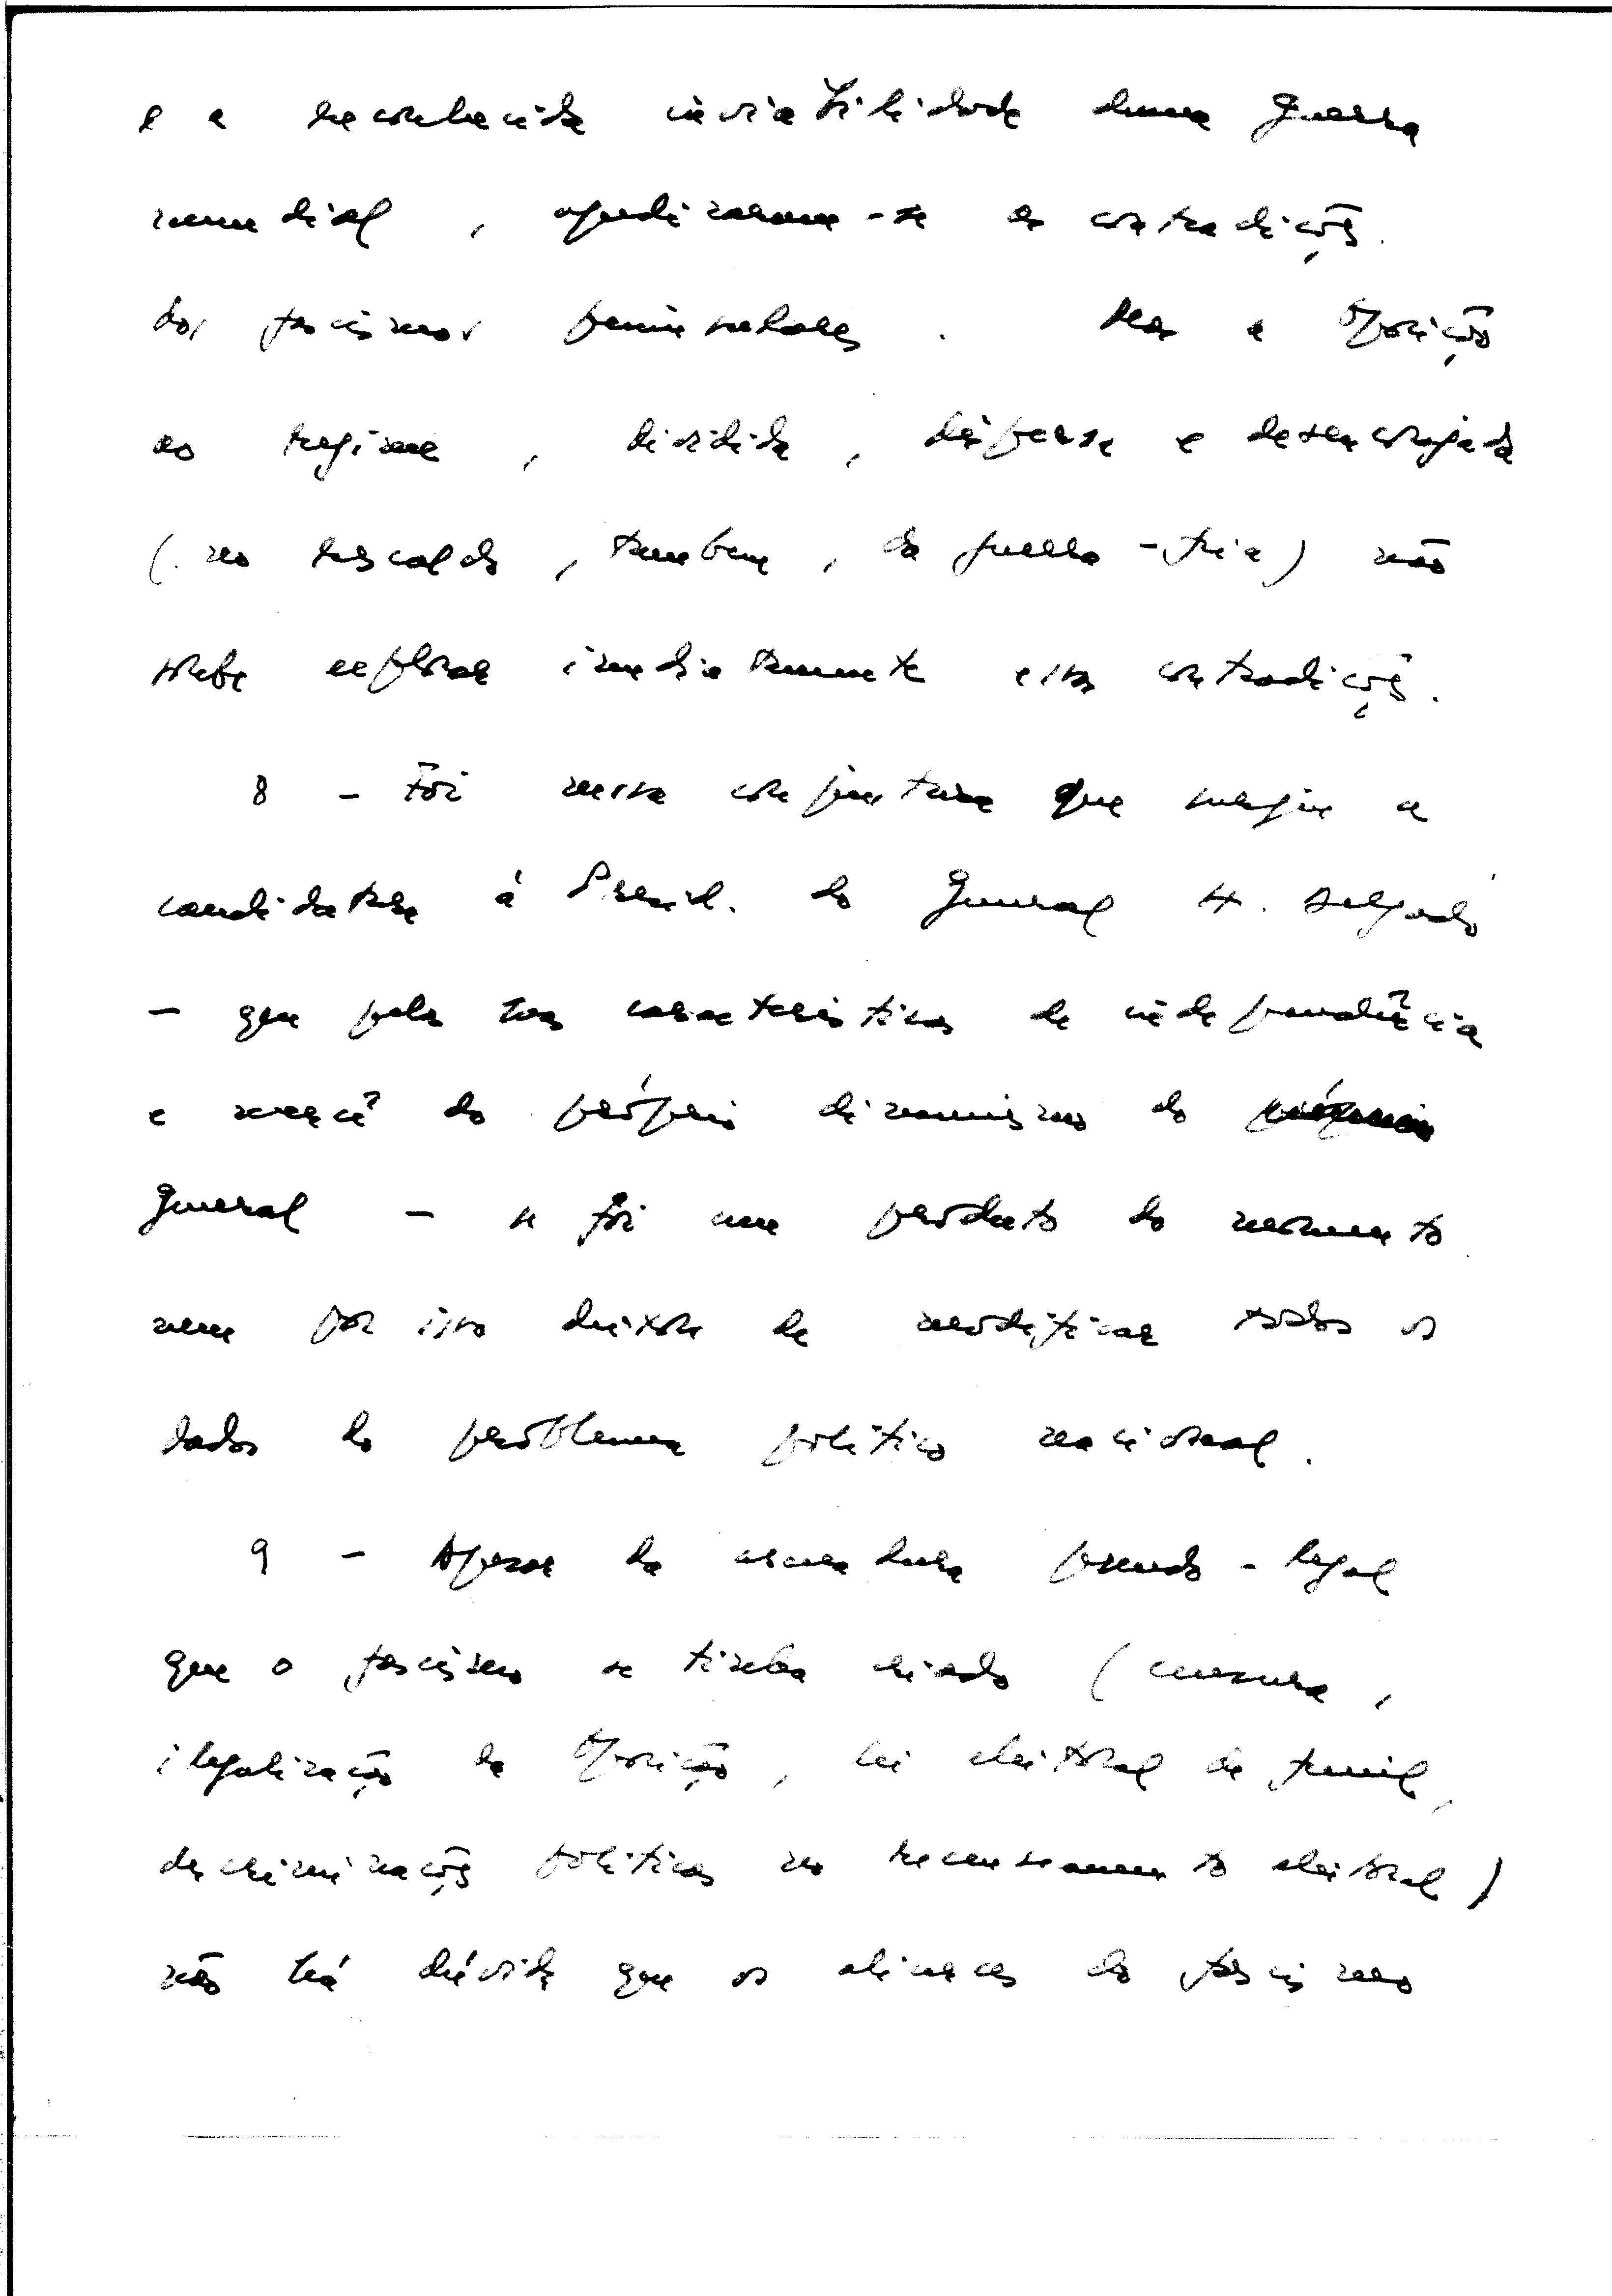 e a reconhecida inviabilidade duma guerra
mundial, agudizaram-se as contradições
dos fascismos peninsulares. Mas a oposição
ao regime, dividida, dispersa e desencorajada
(no rescaldo, tambem, da guerra-fria) não
soube explorar imediatamente essas contradições.
8 - Foi nessa conjuntura que surgiu a
candidatura á Presid. do general H. Delgado
- que pelas suas caracteristicas de independência
e mercê do próprio dinamismo do
general - se foi um produto do momento
nem por isso deixou de modificar todos os
dados do problema politico nacional.
9 - Apesar da armadura pseudo-legal
que o fascismo se tinha criado (censura,
ilegalização da oposição, lei eleitoral de funil,
descriminações politicas no recenseamento eleitoral)
não há dúvida que os alicerces do fascismo